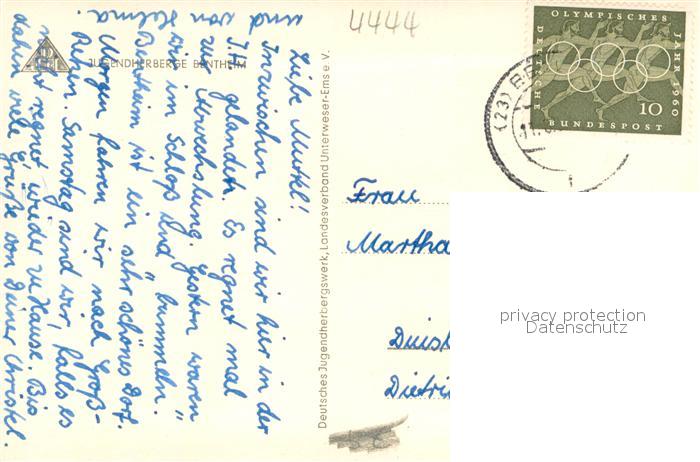 4444
JUGENDHERBERGE BENTHEIM
Liebe Muttel!
Inzwischen sind wir hier in der
J.H. gelandet. Es regnet mal
zur Abwechslung. Gestern waren
wir im Schloß und "bummeln".
Bentheim ist ein sehr schönes Dorf.
Morgen fahren wir nach Groß-
Reken. Samstag sind wir, falls es
nicht regnet wieder zu Hause. Bis
dahin viele Grüße von Deiner Christel.
und von Helma
Deutsches Jugendherbergswerk, Landesverband Unterweser-Ems e.V.
OLYMPISCHES
JAHR 1960
DEUTSCHE
BUNDESPOST
10
(23) BE
Frau
Martha
Duisb
Dietri
privacy protection
Datenschutz